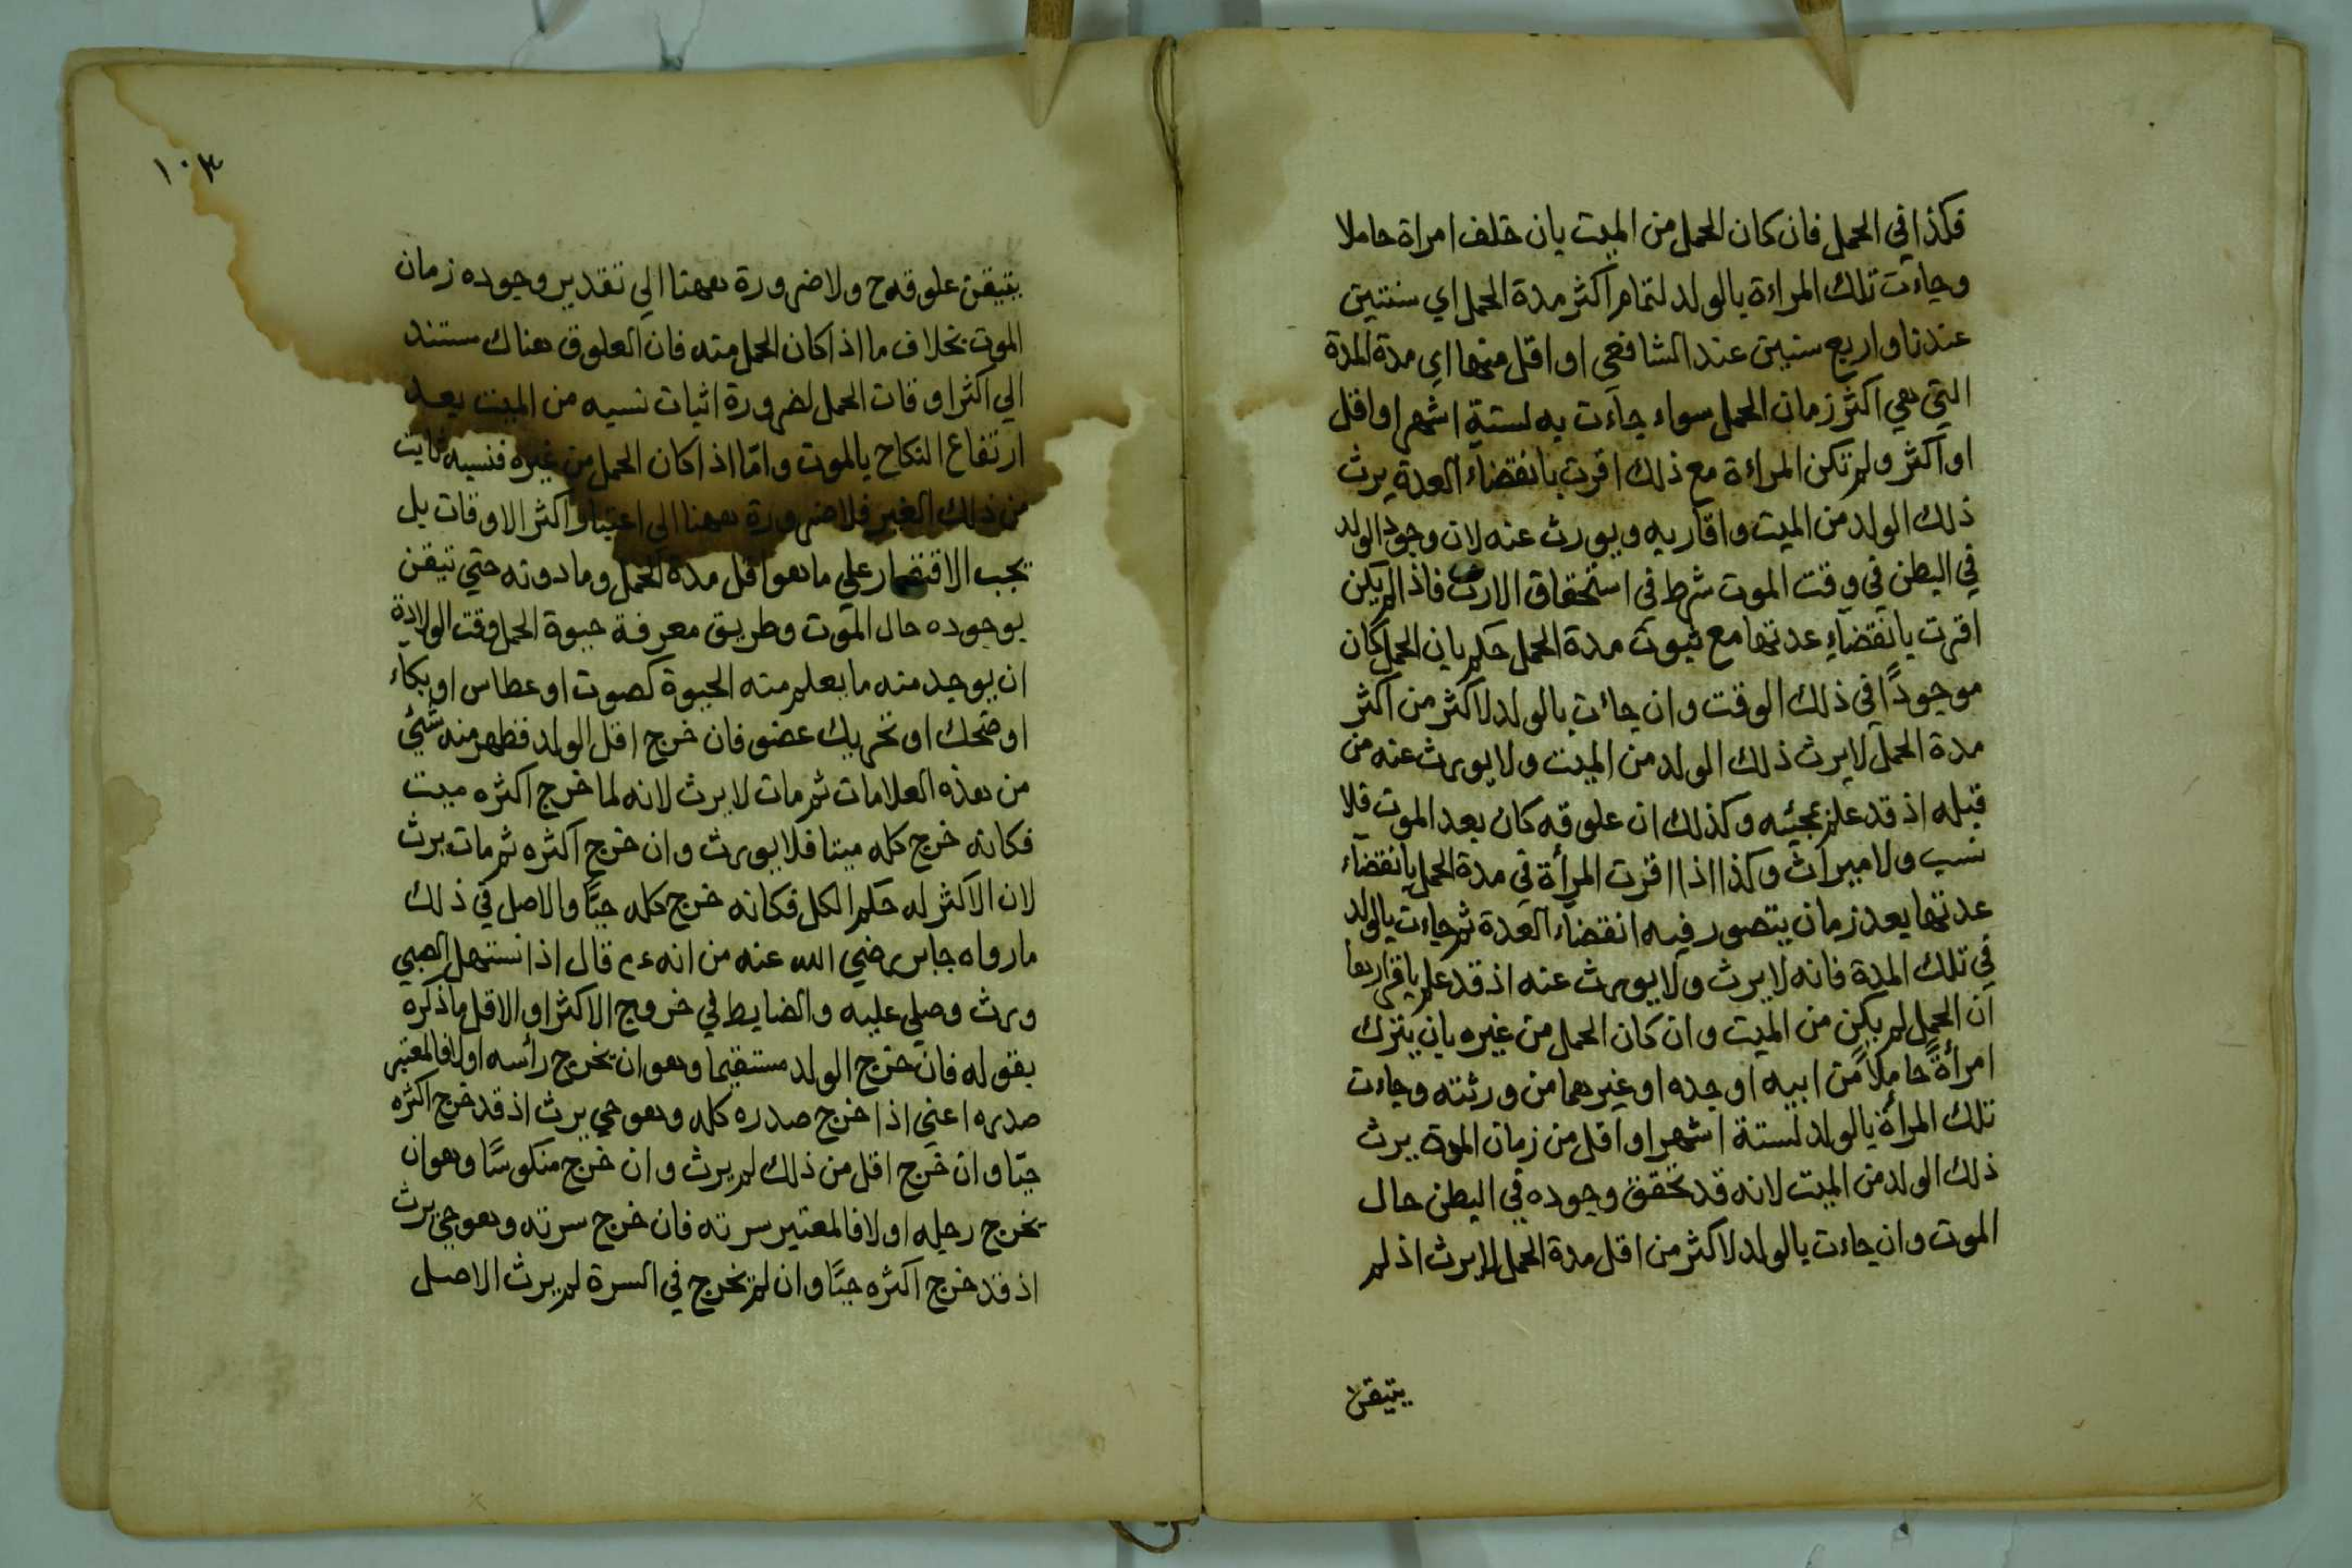 فكذا في الحمل فان كان الحمل من الميت بان خلف امراة حاملا
وجاءت تلك المراءة بالولد لتمام اكثر مدة الحمل اي سنتين
عندنا واربع سنين عند الشافعي او اقل منها اي مدة المدة
التي هي اكثر زمان الحمل سواء جاءت به لستة اشهر او اقل
او اكثر ولم تكن المراءة مع ذلك اقرت بانقضاء العدة يرث
ذلك الولد من الميت واقاربه ويورث عنه لان وجود الولد
في البطن في وقت الموت شرط في استحقاق الارث فاذا لم يكن
اقرت بانقضاء عدتها مع ثبوت مدة الحمل حكم بان الحمل كان
موجودًا في ذلك الوقت وان جاءت بالولد لاكثر من اكثر
مدة الحمل لا يرث ذلك الولد من الميت ولا يورث عنه من
قبله اذ قد علم بمجيئه وكذلك ان علوقه كان بعد الموت فلا
نسب ولا ميراث وكذا اذا اقرت المرأة في مدة الحمل بانقضاء
عدتها بعد زمان يتصور فيه انقضاء العدة ثم جاءت بالولد
في تلك المدة فانه لا يرث ولا يورث عنه اذ قد علم باقرارها
ان الحمل لم يكن من الميت وان كان الحمل من غيره بان يترك
امرأةً حاملًا من ابيه او جده او غيرهما من ورثته وجاءت
تلك المرأة بالولد لستة اشهر او اقل من زمان الموت يرث
ذلك الولد من الميت لانه قد تحقق وجوده في البطن حال
الموت وان جاءت بالولد لاكثر من اقل مدة الحمل لا يرث اذ لم
يتيقن
١٠٣
يتيقن علوقه ح ولا ضرورة ههنا الي تقدير وجوده زمان
الموت بخلاف ما اذا كان الحمل منه فان العلوق هناك مستند
الي اكثر اوقات الحمل لضرورة اثبات نسبه من الميت بعد
ارتفاع النكاح بالموت وامّا اذا كان الحمل من غيره فنسبه ثابت
من ذلك الغير فلا ضرورة ههنا الي اعتبار اكثر الاوقات بل
يجب الاقتصار علي ما هو اقل مدة الحمل وما دونه حتي تيقن
بوجوده حال الموت وطريق معرفة حيوة الحمل وقت الولادة
ان يوجد منه ما يعلم منه الحيوة كصوت او عطاس او بكاء
او ضحك او تحريك عضو فان خرج اقل الولد فظهر منه شئ
من هذه العلامات ثم مات لا يرث لانه لما خرج اكثره ميت
فكانه خرج كله ميتا فلا يورث وان خرج اكثره ثم مات يرث
لان الاكثر له حكم الكل فكانه خرج كله حيًّا والاصل في ذلك
ما رواه جابر رضي الله عنه من انه ءم قال اذا استهل الصبي
ورث وصلي عليه والضابط في خروج الاكثر او الاقل ما ذكره
بقوله فان خرج الولد مستقيما وهو ان يخرج رأسه اولا فالمعتبر
صدره اعني اذا خرج صدره كله وهو حي يرث اذ قد خرج اكثره
حيّا وان خرج اقل من ذلك لم يرث وان خرج منكوسًا وهو ان
يخرج رجله اولا فالمعتبر سرته فان خرج سرته وهو حيّ يرث
اذ قد خرج اكثره حيًّا وان لم تخرج في السرة لم يرث الاصل